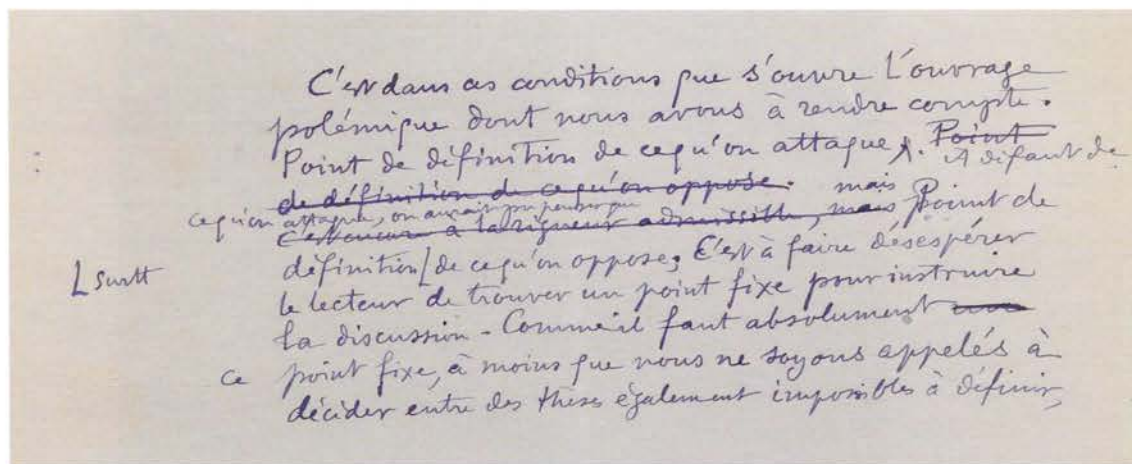 C'est dans ces conditions que s'ouvre l'ouvrage
polémique dont nous avons à rendre compte.
Point de définition de ce qu'on attaque. Point
A défaut de
de définition de ce qu'on oppose. mais
ce qu'on attaque, on aurait pu penser que
c'est encore à la rigueur admissible, mais Point de
définition de ce qu'on oppose, C'est à faire désespérer
L surtt
le lecteur de trouver un point fixe pour instruire
la discussion - Comme il faut absolument
ce point fixe, à moins que nous ne soyons appelés à
décider entre des thèses également impossibles à définir,